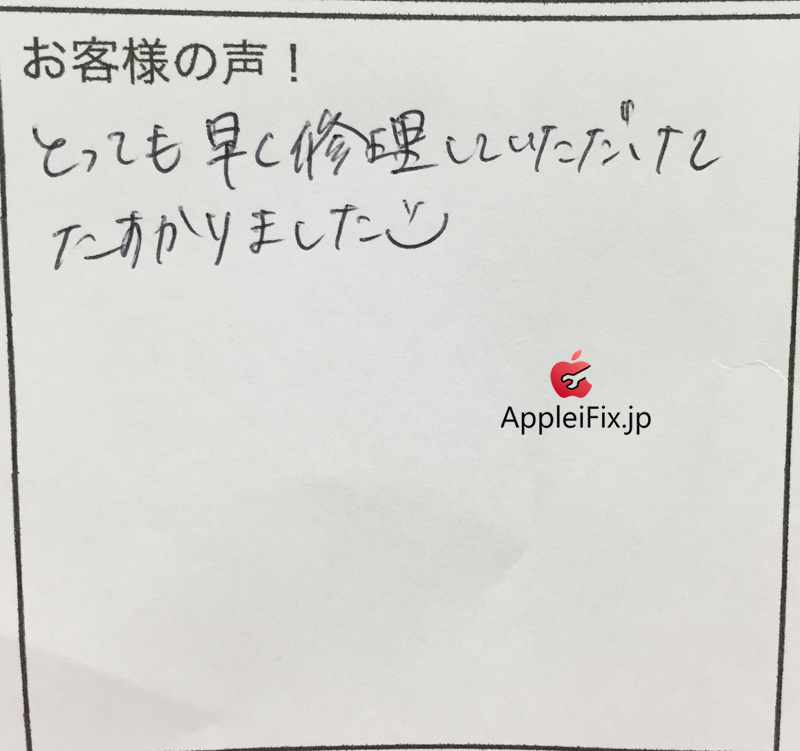 お客様の声!
とっても早く修理していただけて
たすかりました
AppleiFix.jp